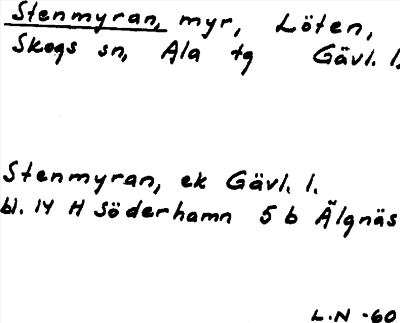 Stenmyran, myr, Löten,
Skogs sn, Ala tg Gävl. l.
Stenmyran, ek Gävl. l.
bl. 14 H Söderhamn 5 b Älgnäs
L.N -60